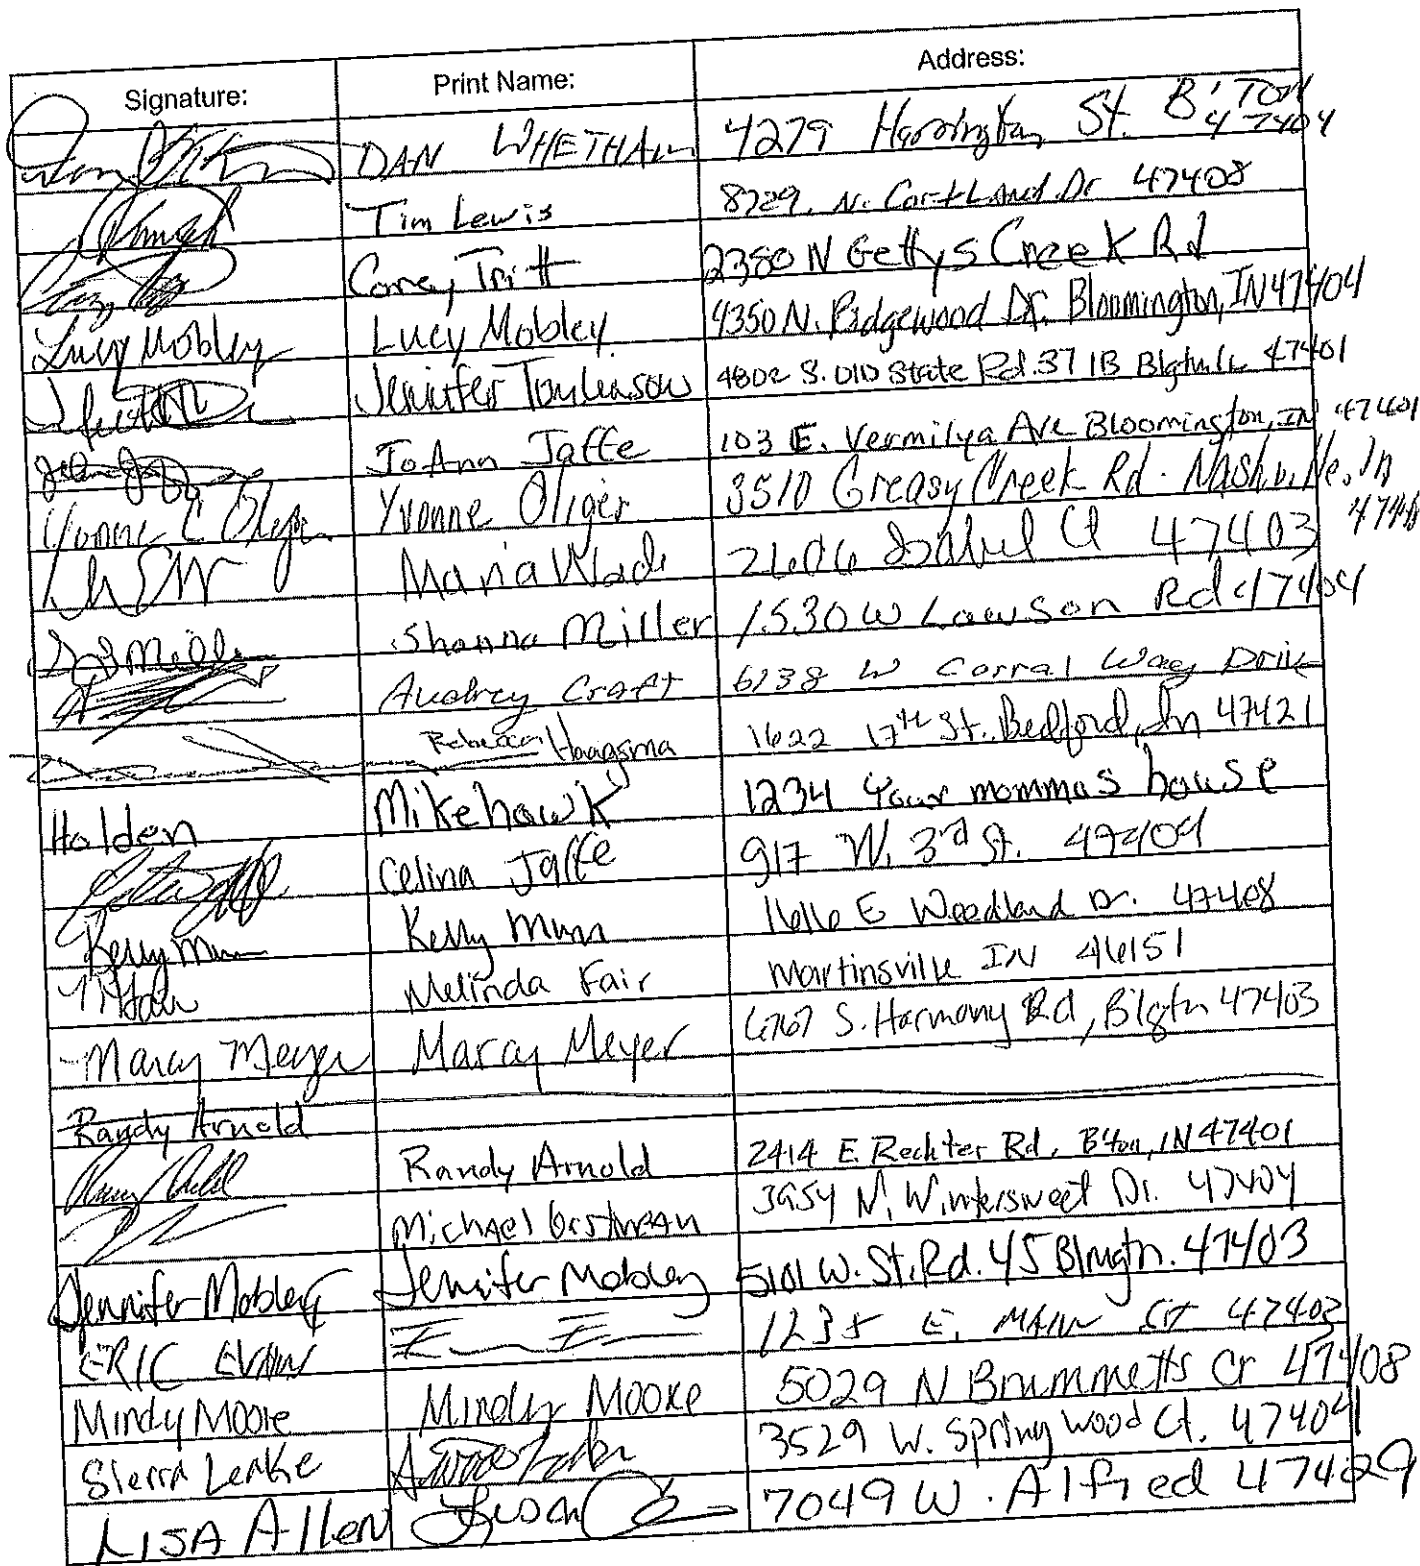 Signature: Print Name: Address:
DAN WHETHAM 4279 Harrington St. B'TON 47404
Tim Lewis 8729. N. Cortland Dr 47408
Corey Tritt 2380 N Gettys Creek Rd
Lucy Mobley Lucy Mobley. 4350 N. Ridgewood Dr. Bloomington, IN 47404
Jennifer Tomlinson 4802 S. OLD State Rd. 37 1B 47401
JoAnn Jaffe 103 E. Vermilya Ave Bloomington, IN 47401
Yvonne C Oliger Yvonne Oliger 3510 Greasy Creek Rd. Nashville, In
Maria Wade 2606 Isabel Ct 47403
Miller Shanna Miller 1530 W Lawson Rd 47404
Audrey Craft 6238 W Corral Way Drive
Rebecca Haagsma 1622 17th St. Bedford, In 47421
Holden Mikehawk 1234 Your mommas house
Celina Jaffe 917 W. 3rd St. 47404
Kelly Munn Kelly Munn 1616 E Woodland Dr. 47408
Melinda Fair Martinsville IN 46151
Marcy Meyer Marcy Meyer 6767 S. Harmony Rd, Blgtn 47403
Randy Arnold
Randy Arnold 2414 E. Rechter Rd, Bton, IN 47401
Michael 3954 N. Wintersweet Dr. 47404
Jennifer Mobley Jennifer Mobley 5101 W. St. Rd. 45 Blmgtn. 47403
ERIC EVANS E. MAIN ST 47403
Mindy Moore Mindy Moore 5029 N Brummetts Cr 47408
Sierra Leake 3529 W. Springwood Ct. 47404
LISA Allen 7049 W. Alfred 47429